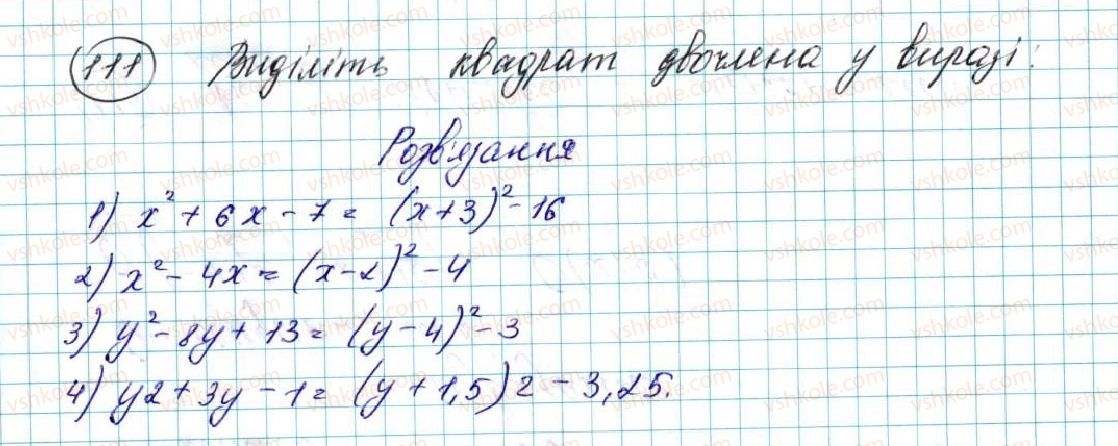 111 Виділіть квадрат двочлена у виразі:
Розв'язання
1) x² + 6x - 7 = (x+3)² - 16
2) x² - 4x = (x-2)² - 4
3) y² - 8y + 13 = (y - 4)² - 3
4) y2 + 3y - 1 = (y + 1,5)2 - 3,25.